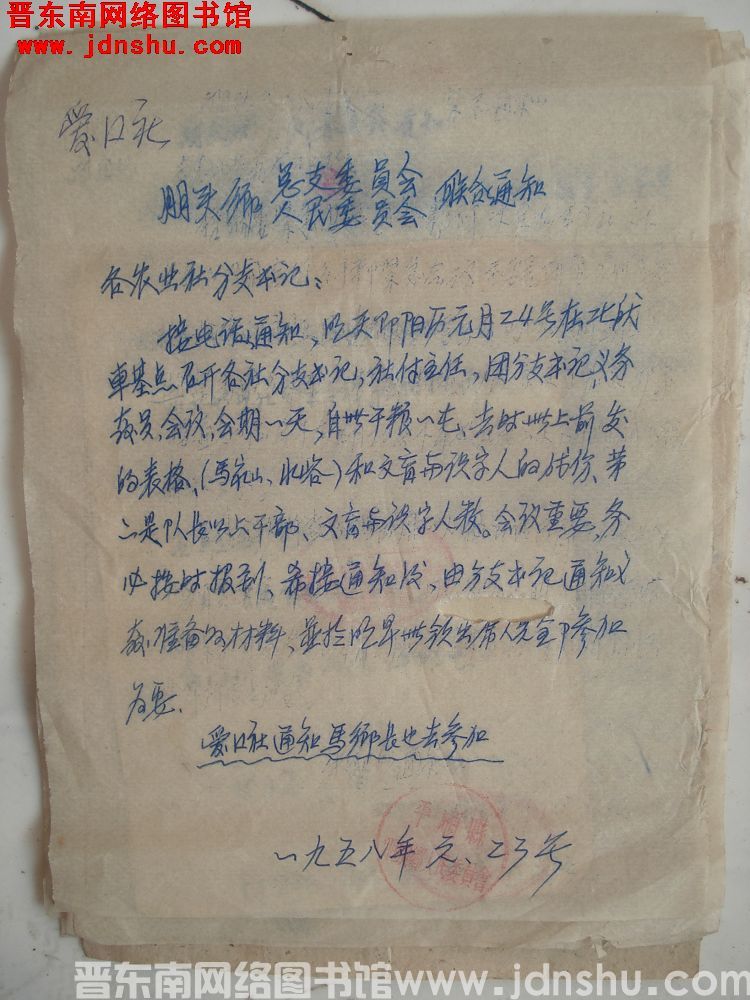 晋东南网络图书馆
www.jdnshu.com
爱口社
朋头乡总支委員会人民委員会联合通知
各农业社分支书记：
接电话通知，明天即阳历元月24号在北伏
車基点召开各社分支书记，社付主任，团分支书记，义务
教员，会议，会期一天，自世干粮一屯，去时世上前发
的表格，(馬家山、水峪)和文盲与识字人的成份，第
二是队长以上干部、文盲与识字人数。会议重要，务
必按时报到，希接通知后，由分支书记通知义
教准备好材料，並於明早世领出席人完全部参加
为要.
爱口社通知馬鄉長也去参加
一九五八年元、23号
平順縣
晋东南网络图书馆www.jdnshu.com